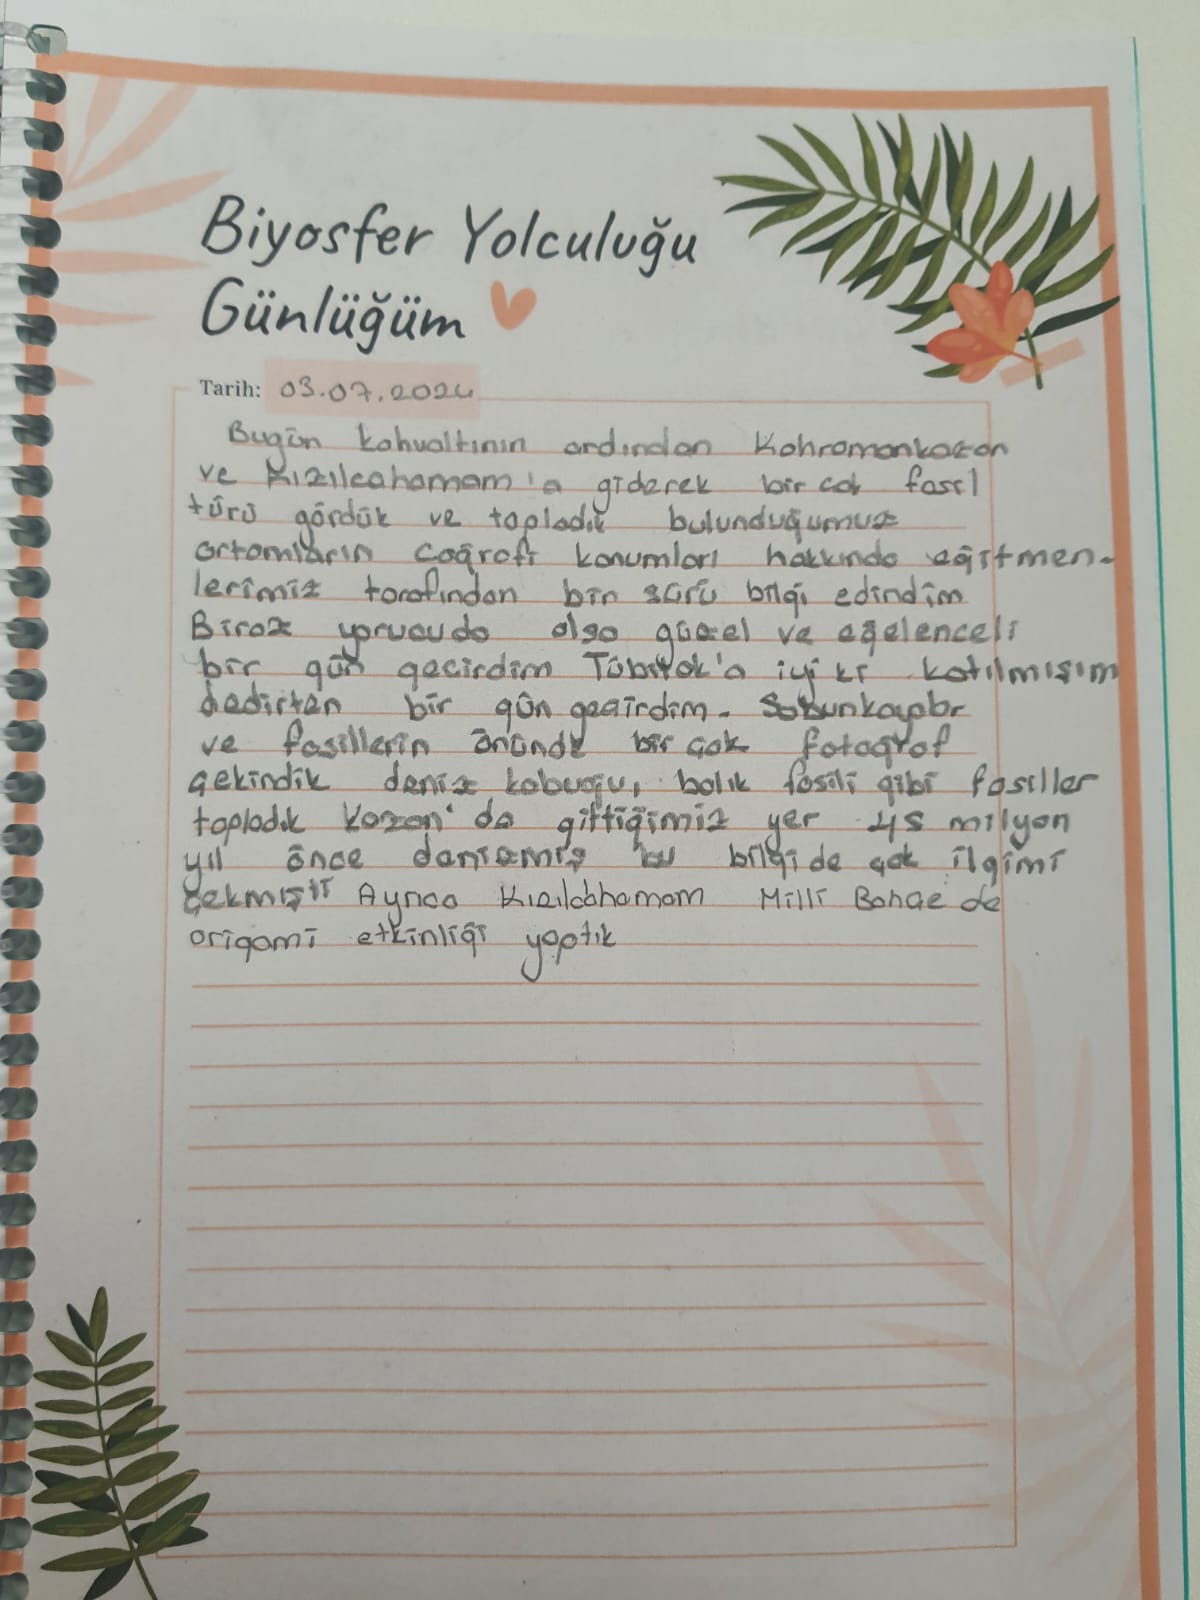 Biyosfer Yolculuğu
Günlüğüm
Tarih: 03.07.2024
Bugün kahvaltının ardından Kahramankazan
ve Kızılcahamam'a giderek bir çok fosil
türü gördük ve topladık bulunduğumuz
ortamların coğrafi konumları hakkında eğitmen-
lerimiz tarafından bir sürü bilgi edindim
Biraz yorucuda olsa güzel ve eğelenceli
bir gün geçirdim Tübitak'a iyi ki katılmışım
dedirten bir gün geçirdim. Sabunkaylar
ve fosillerin önünde bir çok fotoğraf
çekindik deniz kabuğu, balık fosili gibi fosiller
topladık Kazan'da gittiğimiz yer 45 milyon
yıl önce denizmiş bu bilgi de çok ilgimi
çekmişti Ayrıca Kızılcahamam Milli Bahçe de
origami etkinliği yaptık